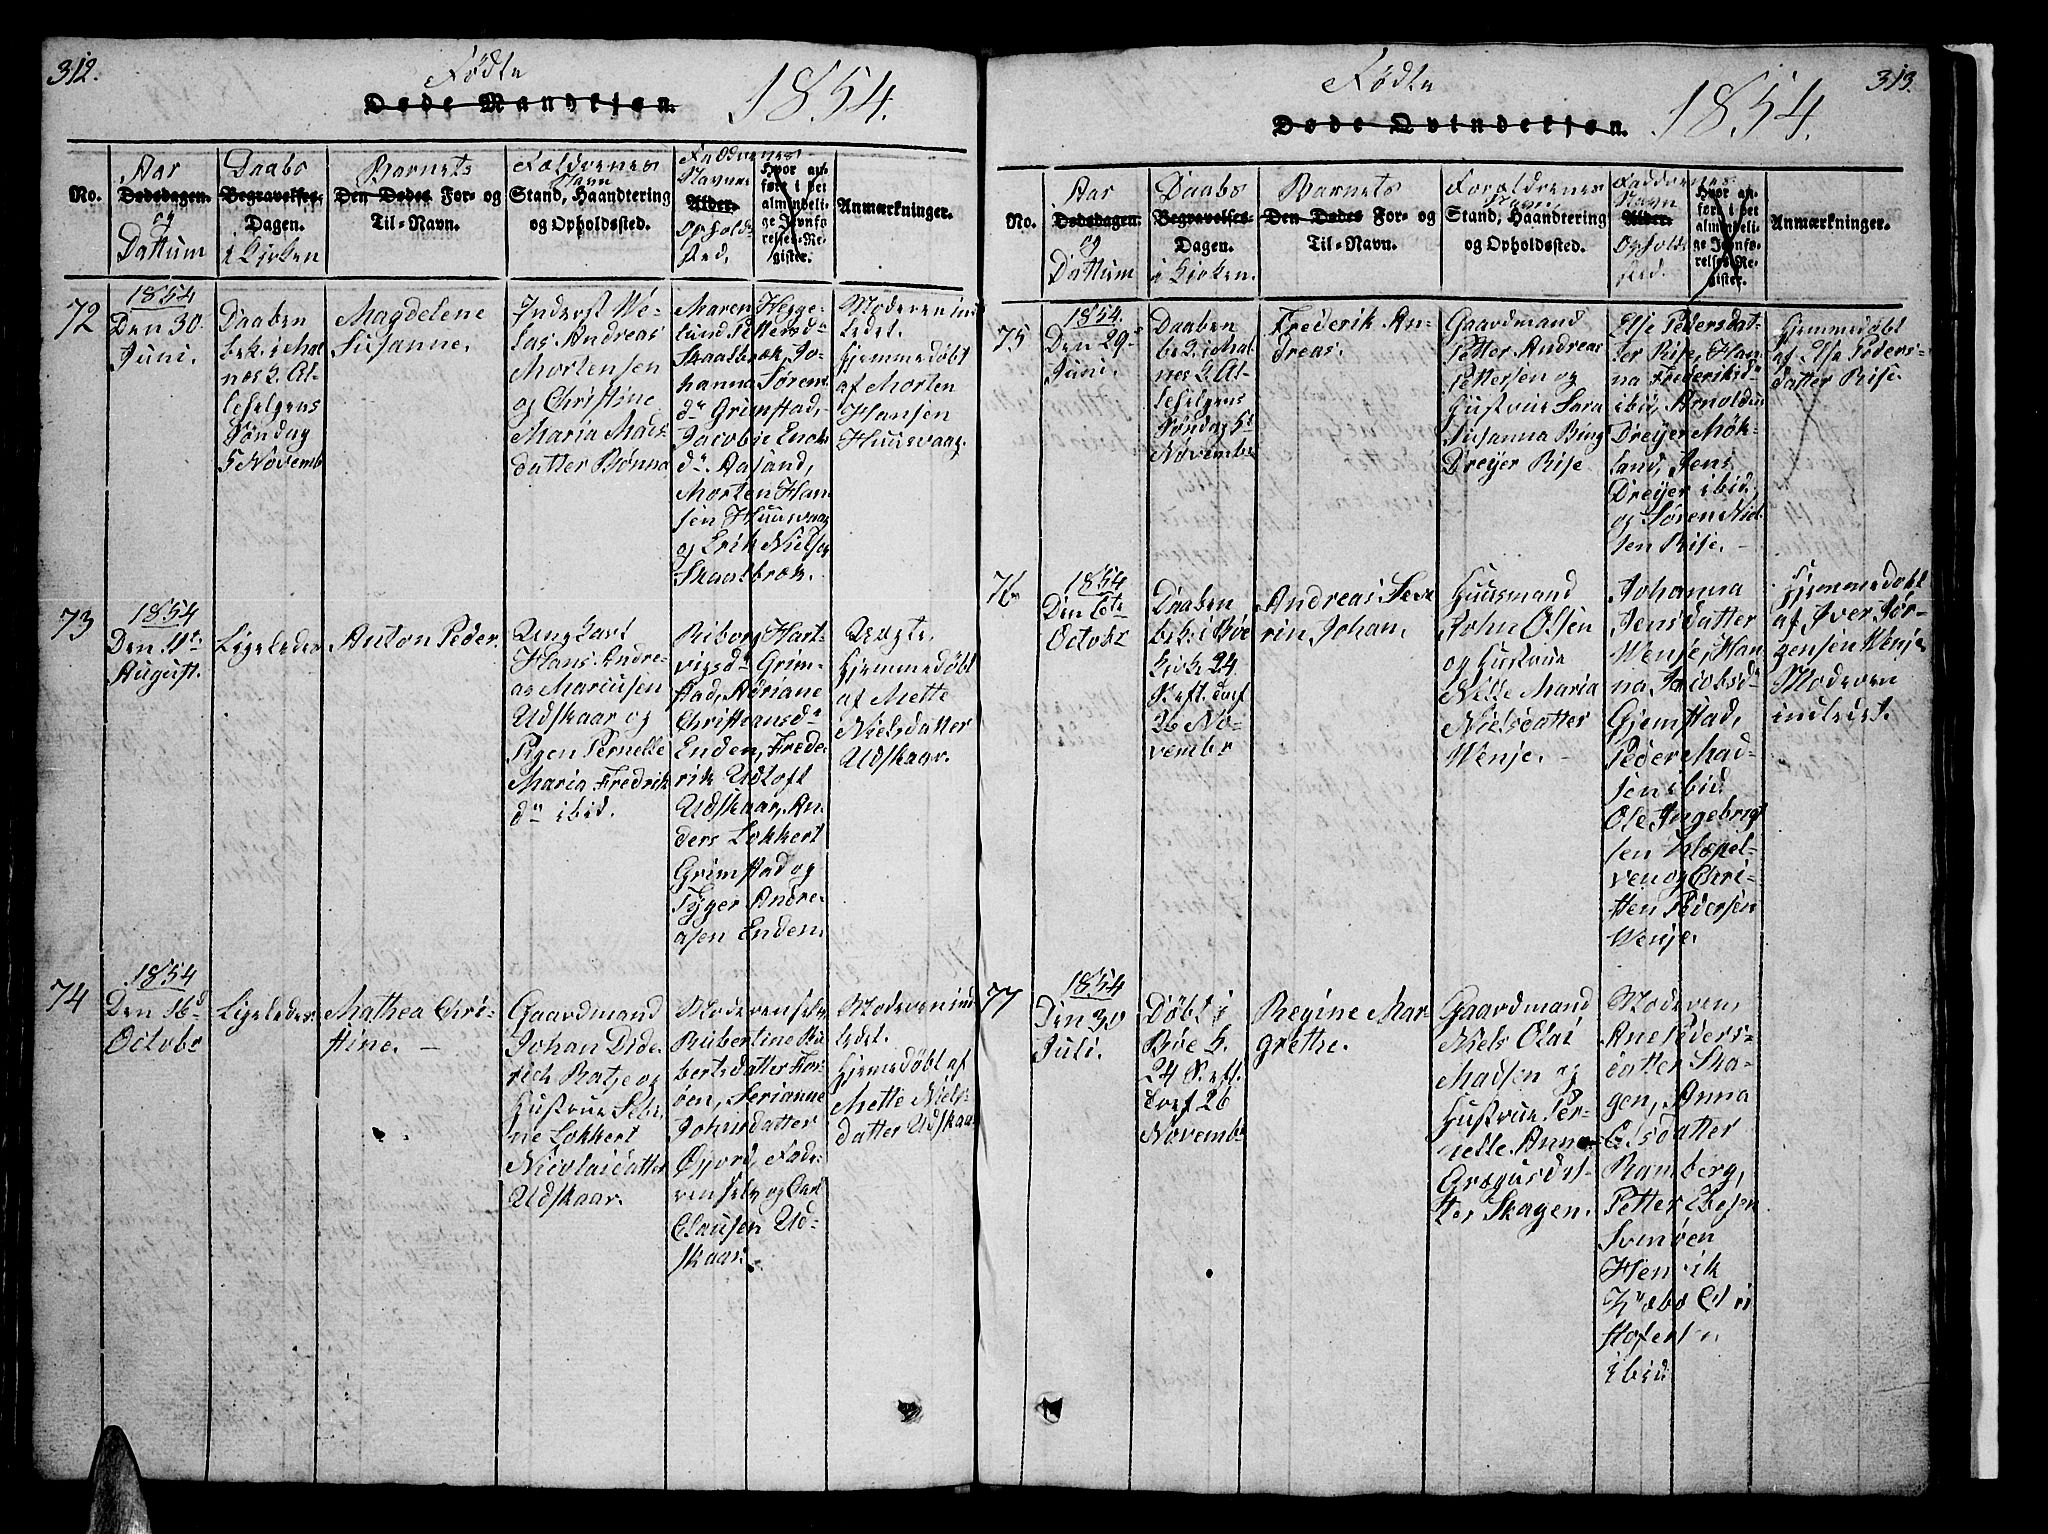 312.
Födte
Døde Mandkjøn.
1854.
No.
Aar
Dødsdagen.
og
Dattum
Daabs
Begravelses-
Dagen.
i Kirken
Barnets
Den Dødes For- og
Til-Navn.
Forældrenes
Navn
Stand, Haandtering
og Opholdssted.
Faddernes
Navne
Alder.
Opholds
sted.
Hvor an-
føre i det
almindeli-
ge Jevnfø-
relses-Re-
gister.
Anmærkninger.
72
1854
Den 30.
Juni.
Daaben
bek. i Mal
nes K. Al
lehelgens
Søndag
5 Novemb
Magdelene
Susanne.
Inderst
Andreas
Mortensen
og Christine
Maria Mads
datter Bønna
Maren Hegge-
lund Pettersd
Skaalbrok, Jo-
hanna Sørens
dr Grimstad,
Jacobje Enoks
dr Aasand,
Morten Han
sen Huusvaag
og Erik Nielsen
Skaalbrok.
Moderen ind
ledet.
Hjemmedøbt
af Morten
Hansen
Huusvaag
73
1854
Den 11te
August.
Ligeledes
Anton Peder.
Ung Karl
Hans Andre-
as Marcusen
Udskaar og
Pigen Pernelle
Maria Fredrik
dr ibid.
Riborg Hart-
vigsd. Grim-
stad, Adriane
Christiansdr
Enden, Frede
rik Udtoft
Udskaar, An
ders Lokkert
Grimstad og
Tyger Andre-
asen Enden.
Uægte.
Hjemmedøbt
af Mette
Nielsdatter
Udskaar.
74
1854
Den 16d
Octobr
Ligeledes
Mathea Chri-
stine. —
Gaardmand
Johan Dide
rich Ratje og
Hustrue
Lokkert
Nicolaidatter
Udskaar.
Moderen selv
Rubertine Ru
bertsdatter For
øen, Serianne
Johnsdatter
Øfjord, Fade-
ren selv og Carl
Clausen Ud-
skaar.
Moderen ind
ledet.
Hjemedøbt af
Mette Niels
datter Udskaar
313.
Födte
Døde Qvindekjøn.
1854.
No.
Aar
Dødsdagen.
og
Dattum
Daabs
Begravelses-
Dagen.
i Kirken.
Barnets
Den Dødes For- og
Til-Navn.
Forældrenes
Navn
Stand, Haandtering
og Opholdssted.
Faddernes
Navn
Alder.
Opholds
sted.
Hvor an-
føre i det
almindeli-
ge Jevnfø-
relses-Re-
gister.
Anmærkninger.
75
1854.
Den 29de
Juni.
Daaben
bek. i Mal
nes K. Al-
lehelgens
Søndag 5t
Novembr
Frederik An-
dreas.
Gaardmand
Petter Andreas
Pettersen og
Hustrue Sara
Susanna Bing
Dreyer Rise
Else Pedersdat-
ter Rise, Han
na Frederiksd
ibid, Arnoldus
Dreyer Møk-
land, Jens
Dreyer ibid,
og Søren Niel
sen Rise. —
Hjemmedøbt
af Else Peders-
datter Rise.
76
1854
Den 6te
Octobr
Daaben
bek. i Bøe
Kirke 24
S. eft. Tref
26 No-
vembr
Andreas Seve
rin Johan.
Huusmand
John Olsen
og Hustrue
Nelle Maria
Nielsdatter
Wenje. —
Johanna
Jensdatter
Wenje, Han
na Jacobsd
Gjemstad,
Peder Mad-
sen ibid
Ole Ingebrigt
sen Kløkel-
ven og Chri-
sten Pedersen
Wenje.
Hjemmedøbt
af Iver Jør-
gensen Wenje
Moderen
indledet.
77
1854
Den 30
Juli.
Døbt i
Bøe K.
24 S. eft.
Tref 26
Novemb
Regine Mar
grethe.
Gaardmand
Niels Olai
Madsen og
Hustrue Per-
nelle Anna
Grægusdat-
ter Skagen.
Moderen,
Ane Peders-
datter Ska-
gen, Anna
Elsdatter
Ramberg,
Petter Ebesen
Svinøen
Henrik
ibid